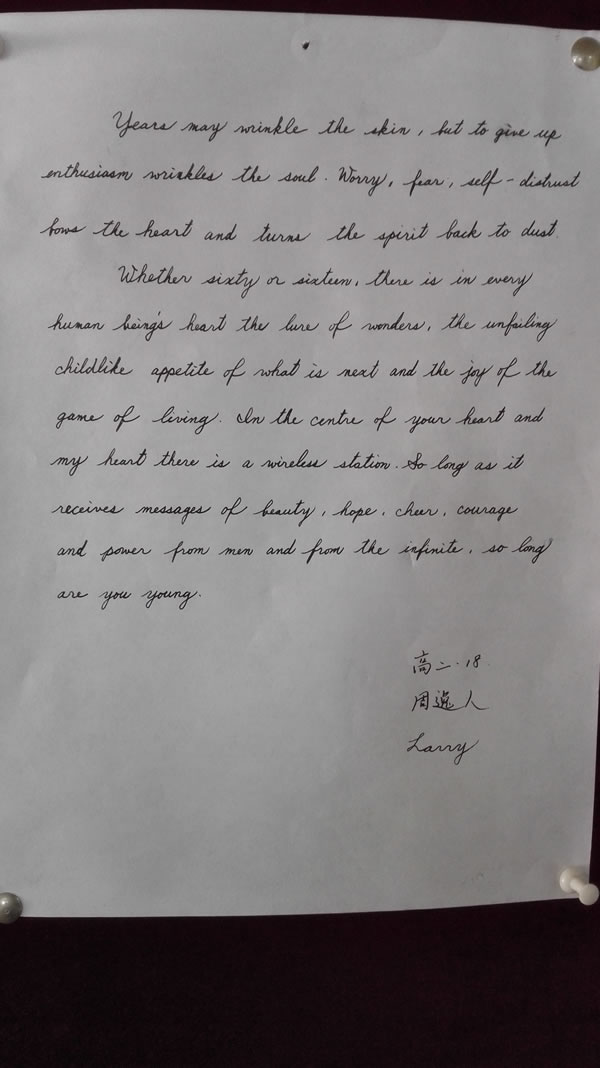 Years may wrinkle the skin, but to give up
enthusiasm wrinkles the soul. Worry, fear, self-distrust
bows the heart and turns the spirit back to dust.
Whether sixty or sixteen, there is in every
human being's heart the lure of wonders, the unfailing
childlike appetite of what is next and the joy of the
game of living. In the centre of your heart and
my heart there is a wireless station. So long as it
receives messages of beauty, hope, cheer, courage
and power from men and from the infinite, so long
are you young.
高二.18.
周逸人
Larry